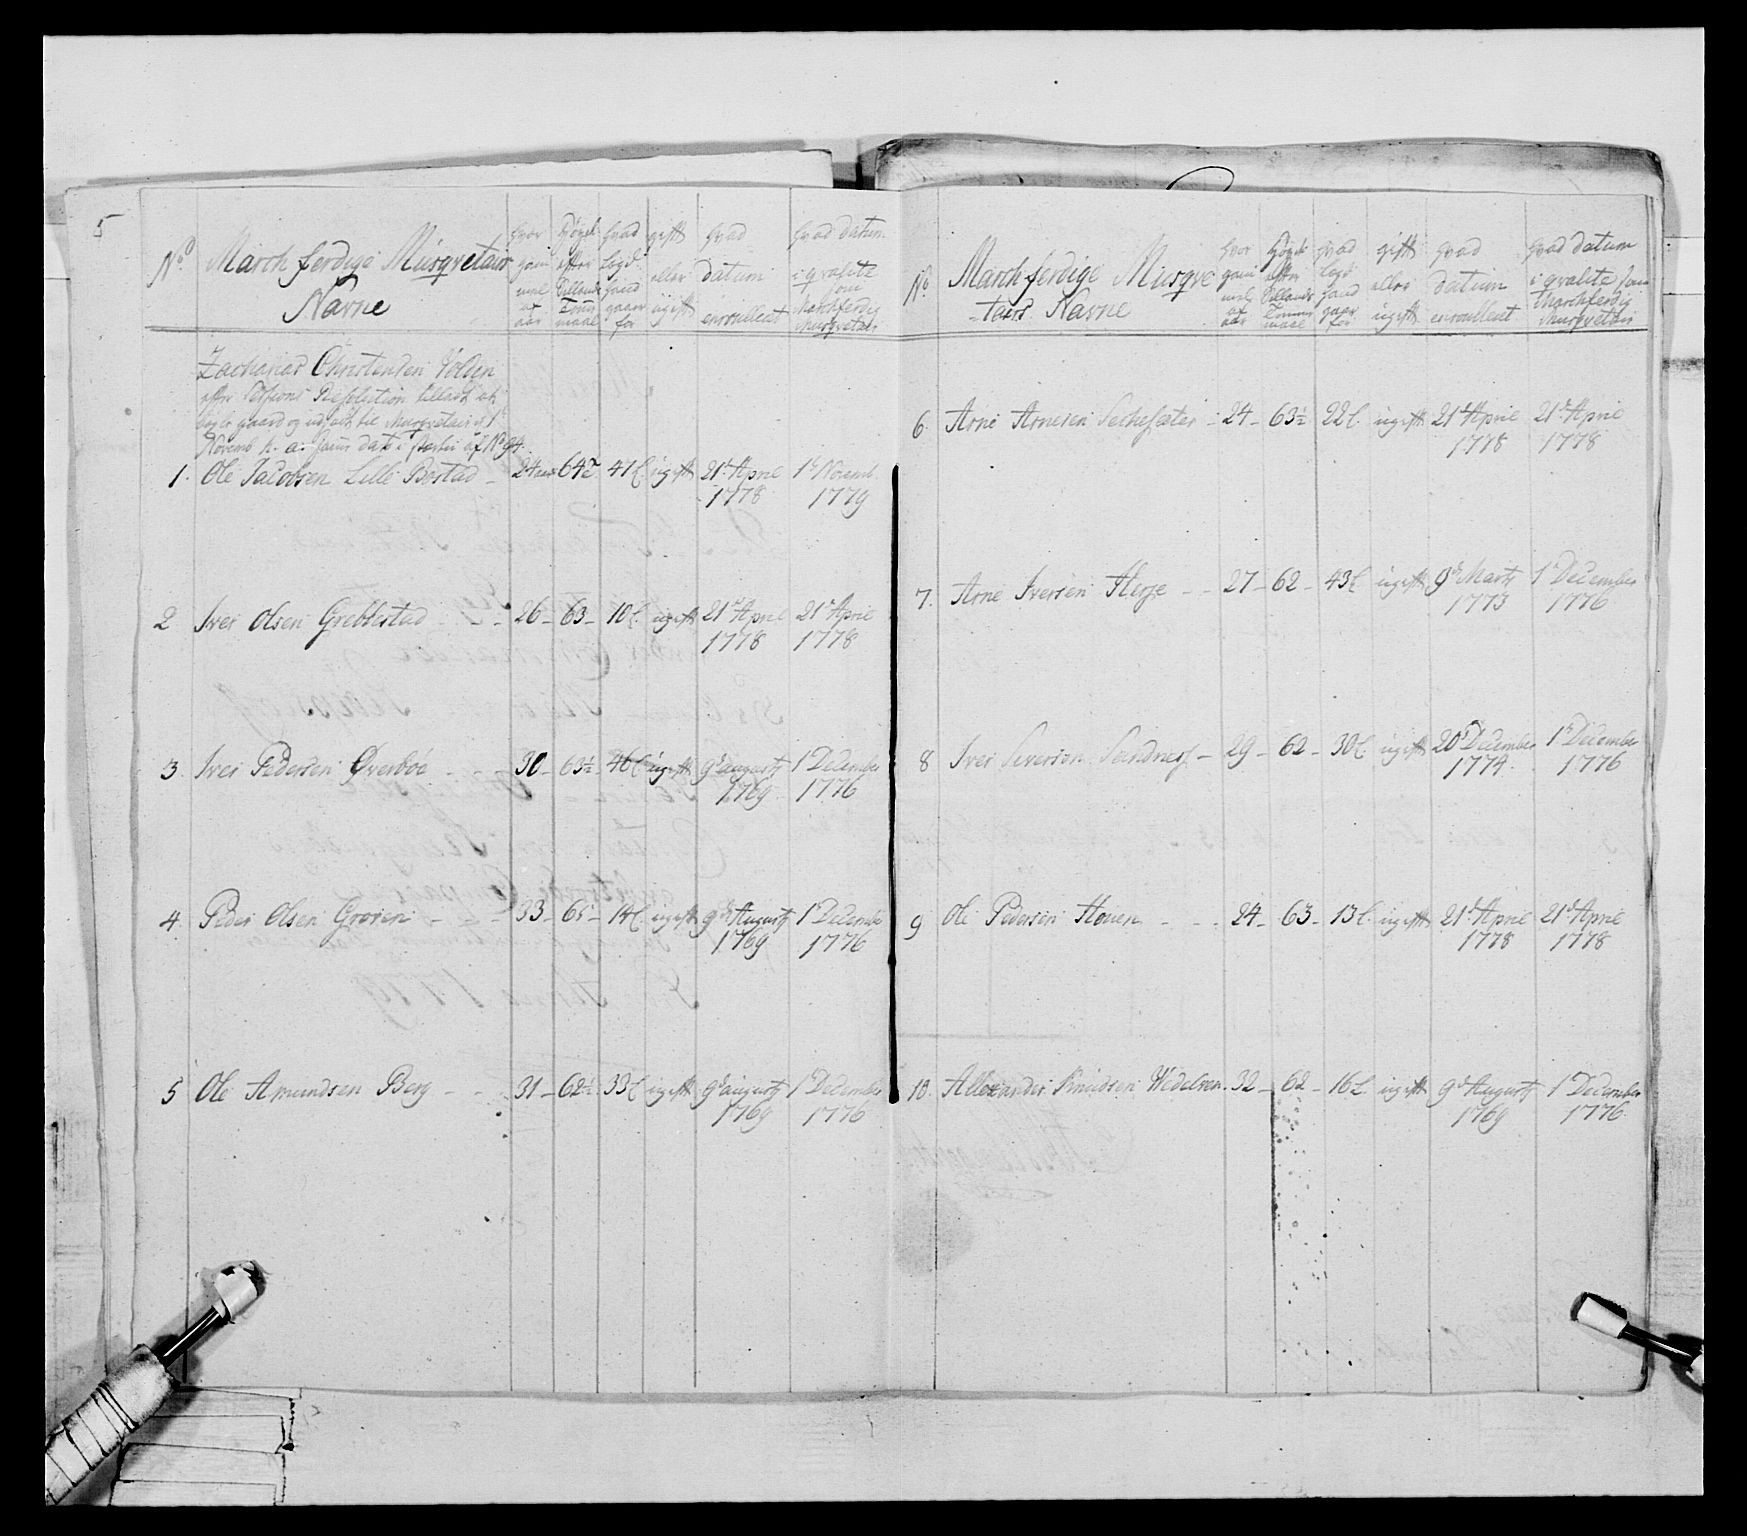 5
No. March ferdige Musqvetairs
Navne
hvor gam̄el af aar
Høyde efter Sillands Tom̄ maal
hvad Legd hand gaar for
gift eller ugift
hvad datum enroullert
hvad datum i qvalite som Marchferdig Musqvetair
Zacharias Christensen Volden
efter Sessions Resolution tilladt at
gaard og til Musqvetair d 1
Novemb h. a. No 94
1. Ole Jacobsen Lille Bostad – 24 aar 64½ 47 l. ugift 21d April 1778 1t Novemb 1779
2 Iver Olsen Grebbestad – – 26 – 63 – 10 l. ugift 21d April 1778 21d Aprie 1778
3 Iver Pedersen Øverboe – 30 – 63½ 46 l. ugift 9d augusty 1769 1t December 1776
4. Peder Olsen Groven – – 33 – 65 – 14 l. ugift 9de Augusty 1769 1t December 1776
5 Ole Amundsen Berg – – 31 – 62½ 33 l. ugift 9d augusty 1769 1t December 1776
No. March ferdige Musqve
-tairs Navne
hvor gam̄el af aar
Høyde efter Sillands Tom̄ maal
hvad legd hand gaar for
gift eller ugift
hvad datum enroullert
hvad datum i qvalite som Marchferdig Musqvetair
6. Arne Arnesen Sechesæter – 24 – 63½ 22 l. ugift 21d Aprie 1778 21d Aprie 1778
7. Arne Iversen Herje – – 27 – 62 – 43 l. ugift 9de Marty 1773 1t December 1776
8 Iver Siverson Sandnes – 29 – 62 – 30 l. ugift 20d December 1774 1t December 1776
9 Ole Pedersen Houen – – – 24 – 63 – 13 l. ugift 21d Aprie 1778 21d Aprie 1778
10. Allexander Knudsen Wedelven. 32 – 62 – 16 l. ugift 9d Augusty 1769 1t December 1776